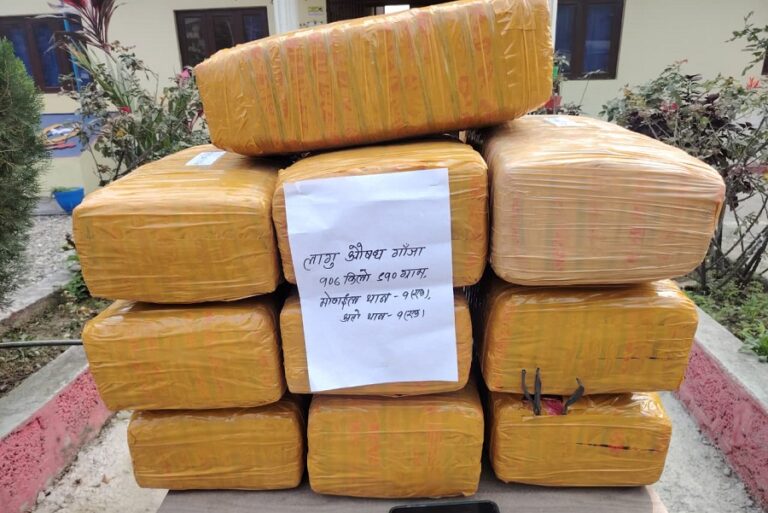 लागु औषध गाँजा
१०६ किलो ८१० ग्राम,
मोवाईल थान - १(एक),
अटो थान - १(एक)